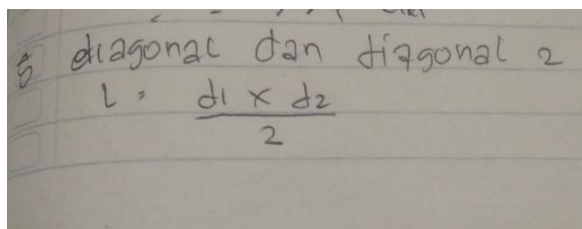 diagonal dan diagonal 2
L = d1 x d2
2